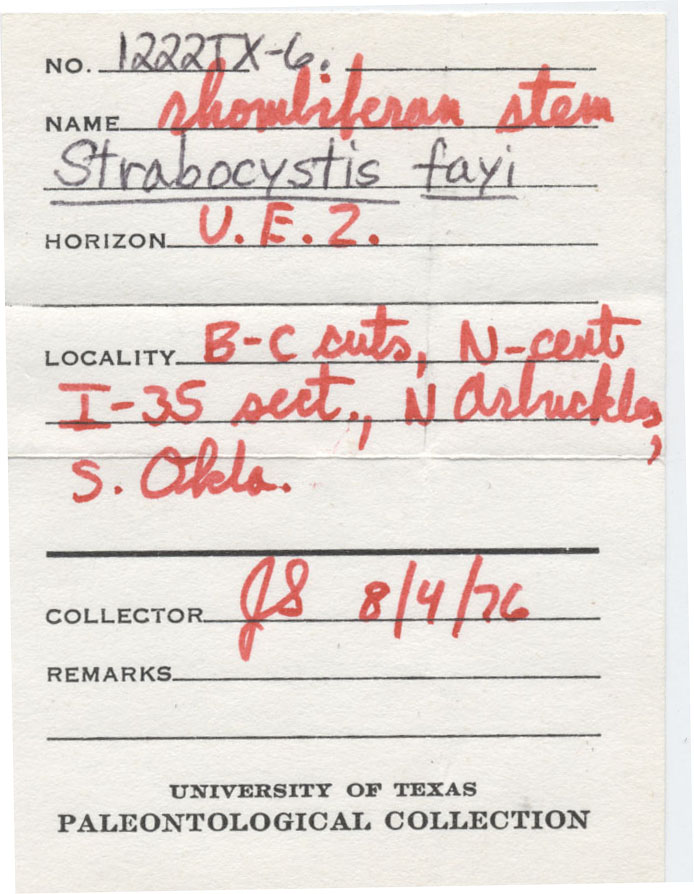 NO. 1222TX-6.
NAME rhombiferan stem
Strabocystis fayi
HORIZON U.E.Z.
LOCALITY B-C cuts, N-cent
I-35 sect., N Arbuckles,
S. Okla.
COLLECTOR JS 8/4/76
REMARKS
UNIVERSITY OF TEXAS
PALEONTOLOGICAL COLLECTION